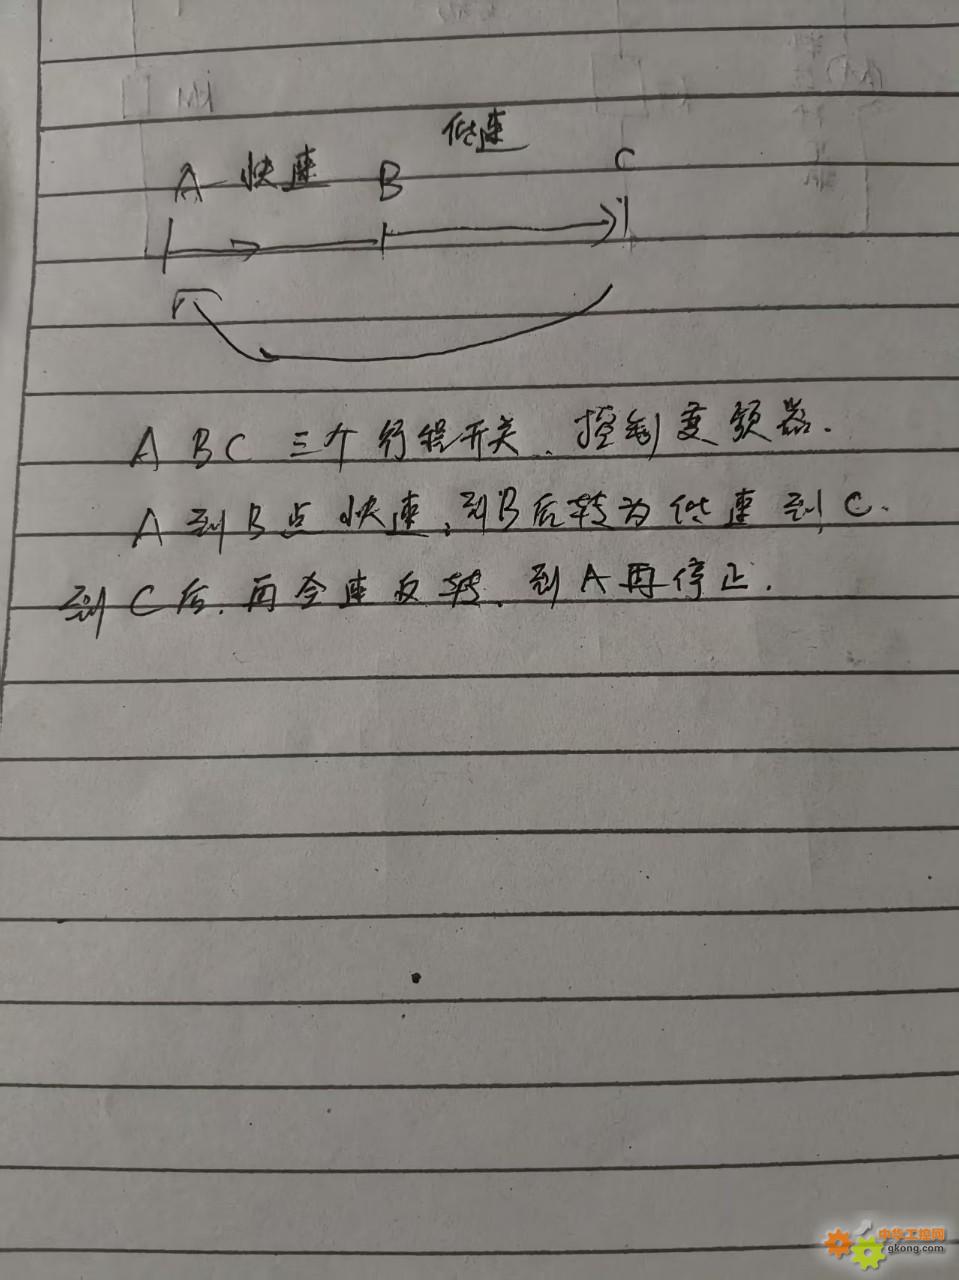 KM
低速
A 快速 B C
A B C 三个行程开关、控制变频器.
A 到B点快速、到B后转为低速到C.
到C后.再全速反转、到A再停止.
中华工控网
gkong.com